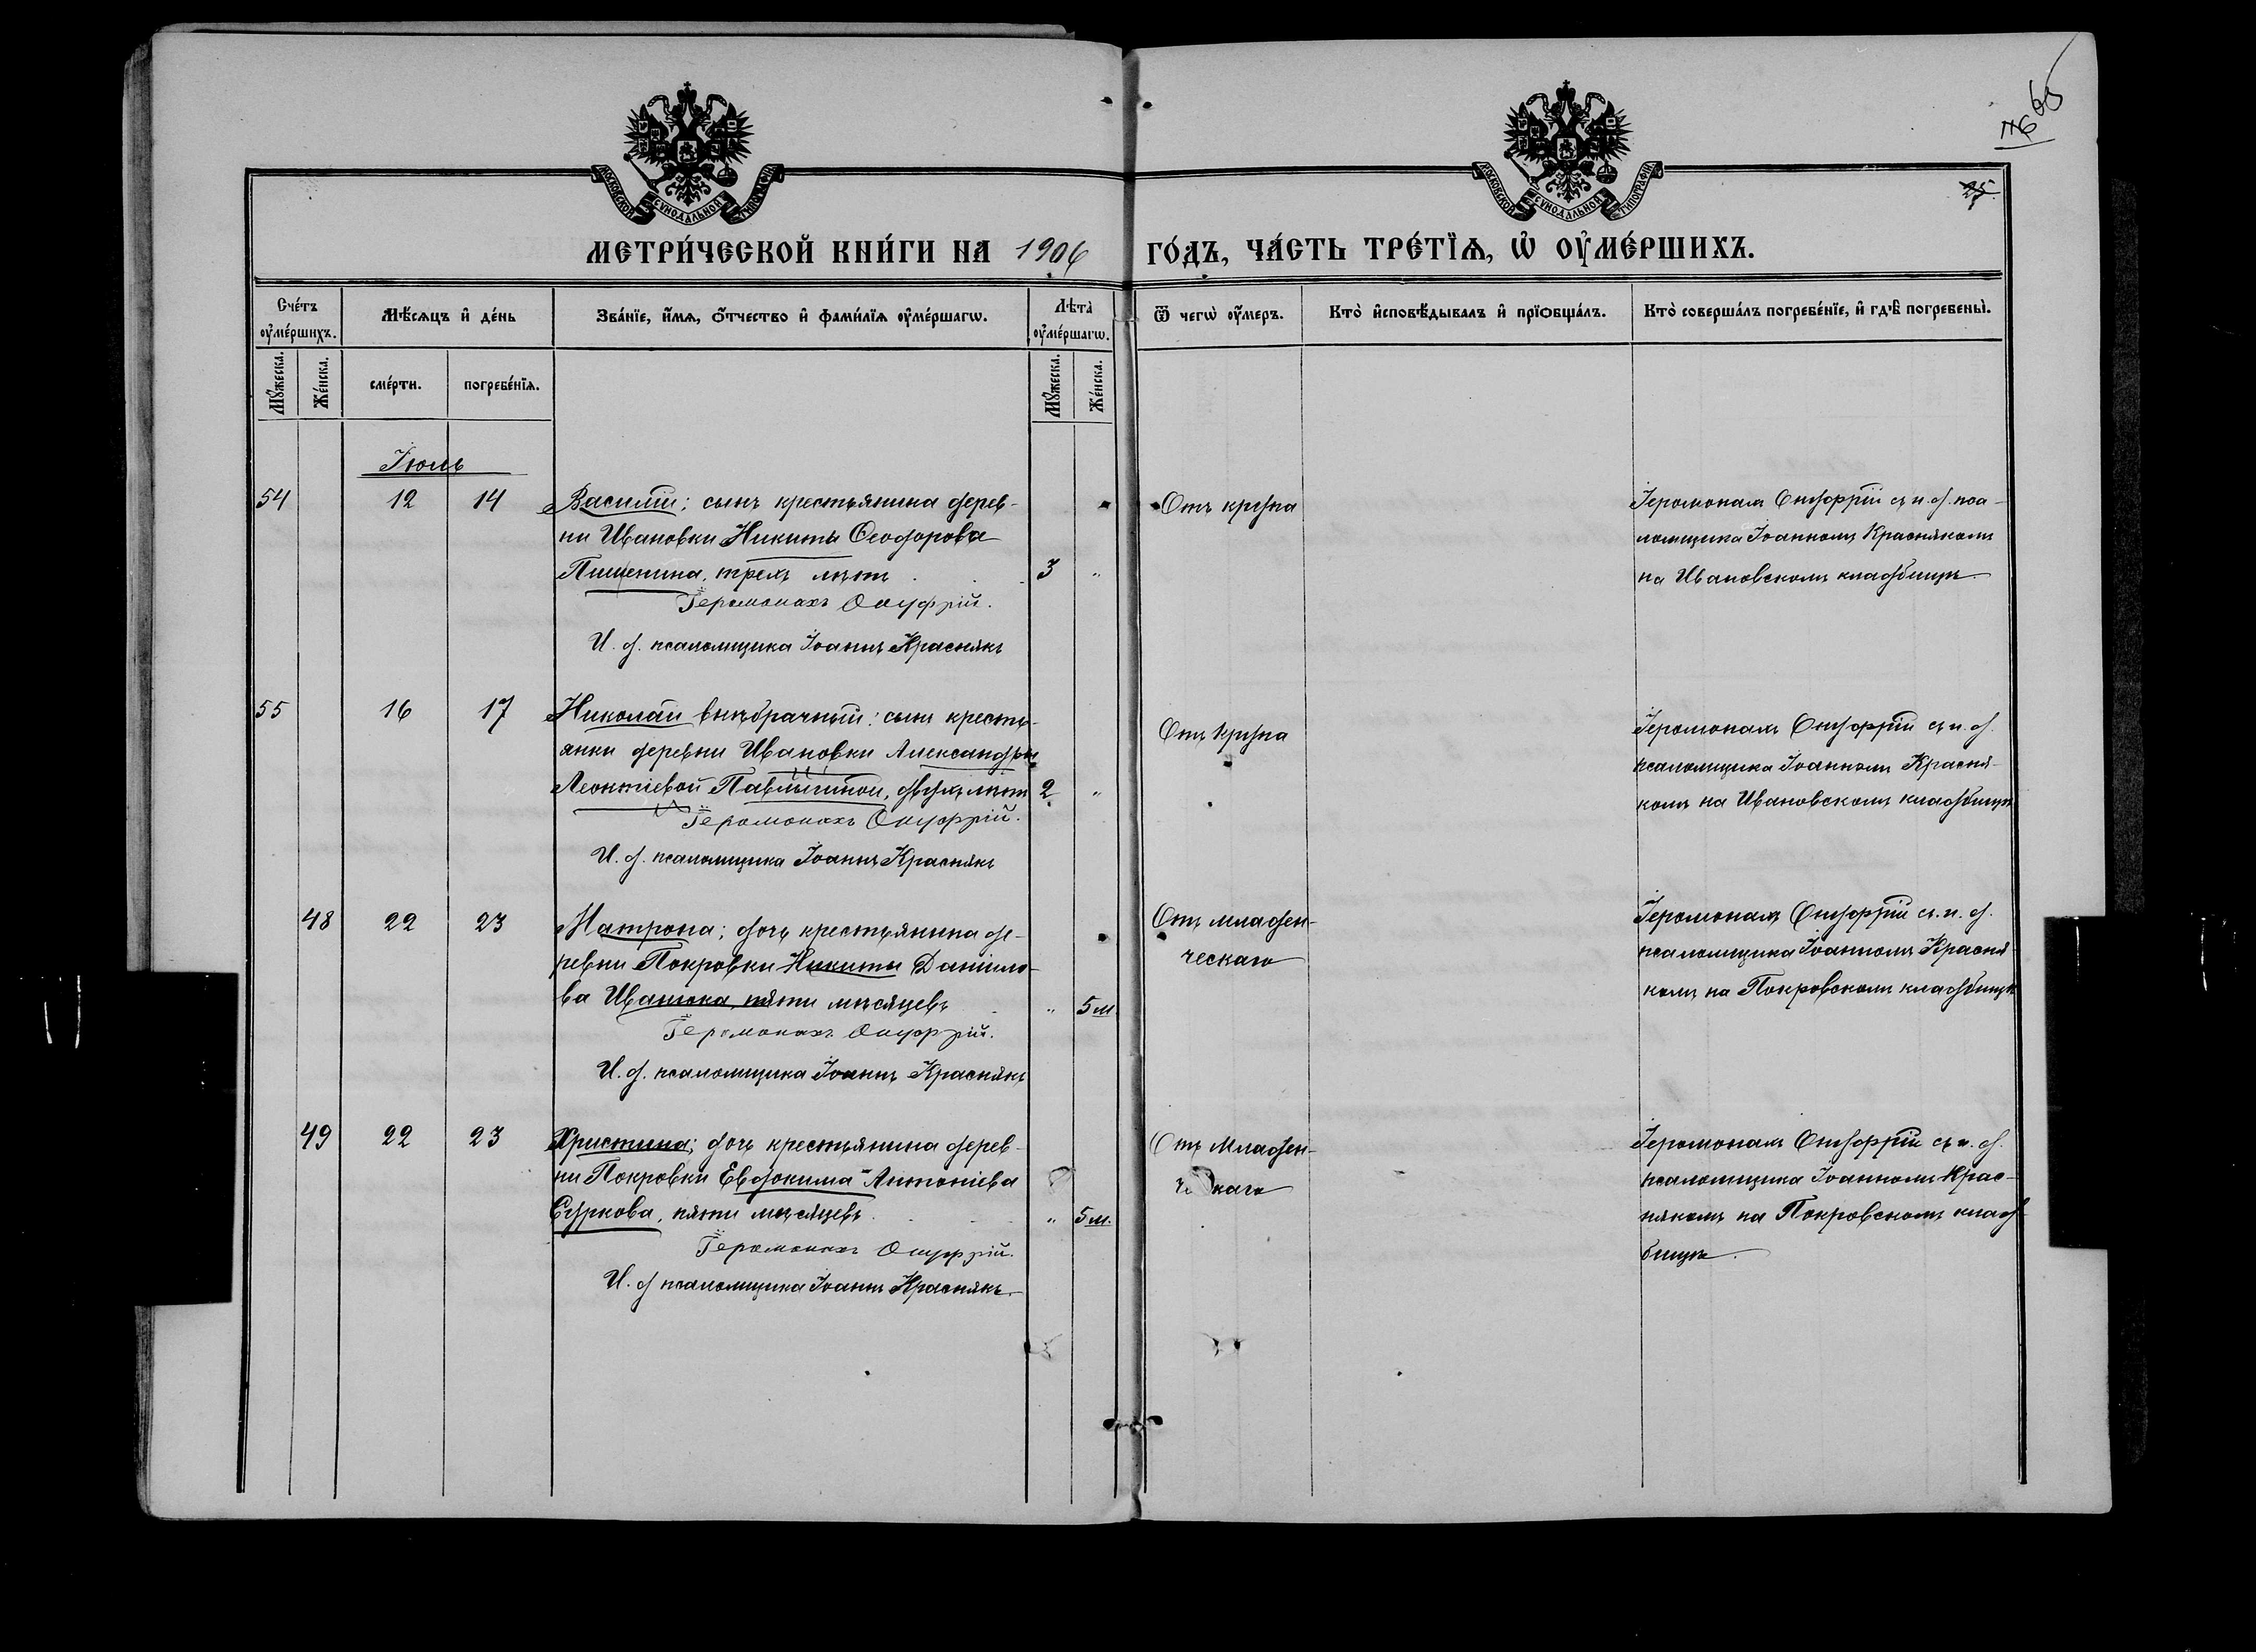 МОСКОВСКОЙ СУНОДАЛЬНОЙ ТИПОГРАФІИ
МОСКОВСКОЙ СУНОДАЛЬНОЙ ТИПОГРАФІИ
65
25
МЕТРИ́ЧЕСКОЙ КНИ́ГИ НА 1906 ГО́ДЪ, ЧА́СТЬ ТРЕ́ТЇѦ, Ѡ҆ ОУ҆МЕ́РШИХЪ.
Сче́тъ оу҆ме́ршихъ.
Мѣ́сѧцъ и҆ де́нь
Зва́нїе, и҆́мѧ, ѻ҆́тчество и҆ фами́лїѧ оу҆ме́ршагѡ.
Лѣта̀ оу҆ме́ршагѡ.
Ѿ чегѡ̀ оу҆́меръ.
Кто̀ и҆сповѣ́дывалъ и҆ прїѡбща́лъ.
Кто̀ соверша́лъ погребе́нїе, и҆ гдѣ̀ погребены̀.
Мꙋ́жеска.
Же́нска.
сме́рти.
погребе́нїѧ.
Мꙋ́жеска.
Же́нска.
Іюль
54 12 14 Василій; сынъ крестьянина дерев-
ни Ивановки Никиты Ѳеодорова
Пишенина, трехъ лѣтъ 3 „
Іеромонахъ Онуфрій.
И. д. псаломщика Іоаннъ Краснякъ
Отъ крупа
Іеромонахъ Онуфрій съ и. д. пса-
ломщика Іоанномъ Краснякомъ
на Ивановскомъ кладбищѣ
55 16 17 Николай внѣбрачный: сынъ кресть-
янки деревни Ивановки Александры
Леонтіевой Павлычиной, двухъ лѣтъ 2 „
Іеромонахъ Онуфрій.
И. д. псаломщика Іоаннъ Краснякъ
Отъ крупа
Іеромонахъ Онуфрій съ и. д.
псаломщика Іоанномъ Красня-
комъ на Ивановскомъ кладбищѣ
48 22 23 Матрона; дочь крестьянина де-
ревни Покровки Никиты Даніило-
ва Иванюка, пяти мѣсяцевъ „ 5 м.
Іеромонахъ Онуфрій.
И. д. псаломщика Іоаннъ Краснякъ
Отъ младен-
ческаго
Іеромонахъ Онуфрій съ и. д.
псаломщика Іоанномъ Красня-
комъ на Покровскомъ кладбищѣ
49 22 23 Христина; дочь крестьянина дерев-
ни Покровки Евдокима Антоніева
Суркова, пяти мѣсяцевъ „ 5 м.
Іеромонахъ Онуфрій.
И. д. псаломщика Іоаннъ Краснякъ
Отъ младен-
ческаго
Іеромонахъ Онуфрій съ и. д.
псаломщика Іоанномъ Крас-
някомъ на Покровскомъ клад-
бищѣ.